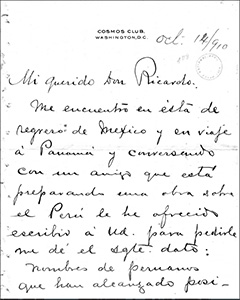 COSMOS CLUB.
WASHINGTON, D.C.
Oct. 14/910
Mi querido Don Ricardo:
Me encuentro en ésta de
regreso de Mexico y en viaje
á Panamá y conversando
con un amigo que está
preparando una obra sobre
el Perú le he ofrecido
escribir á Ud. para pedirle
me dé el sgte. dato:
Nombres de peruanos
que han alcanzado posi-